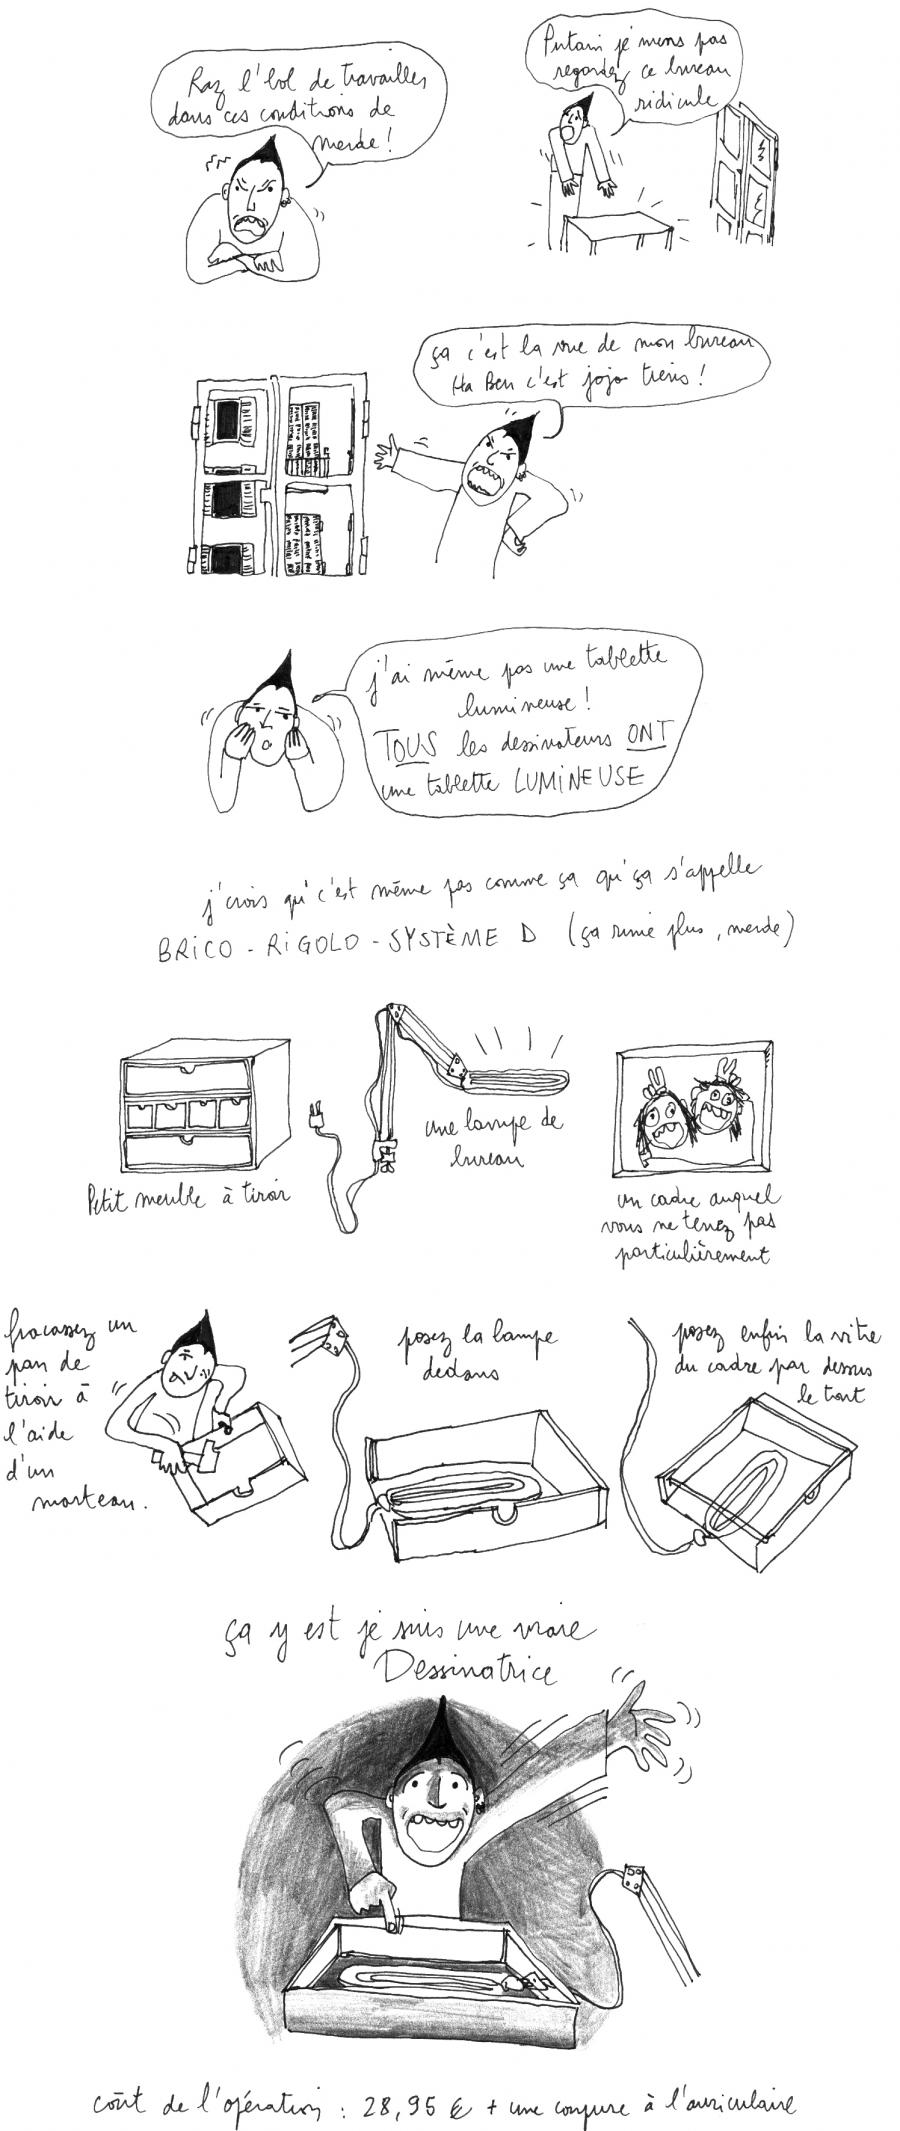 Raz l'bol de travailler
dans ces conditions de
merde!
Putain je mens pas
regardez ce bureau
ridicule
ça c'est la vue de mon bureau
Ha Ben c'est jojo tiens!
j'ai même pas une tablette
lumineuse!
TOUS les dessinateurs ONT
une tablette LUMINEUSE
j'crois qu'c'est même pas comme ça qu'ça s'appelle
BRICO - RIGOLO - SYSTÈME D (ça rime plus, merde)
Petit meuble à tiroir
une lampe de
bureau
un cadre auquel
vous ne tenez pas
particulièrement
fracassez un
pan de
tiroir à
l'aide
d'un
marteau.
posez la lampe
dedans
posez enfin la vitre
du cadre par dessus
le tout
ça y est je suis une vraie
Dessinatrice
coût de l'opération : 28,95 € + une coupure à l'auriculaire